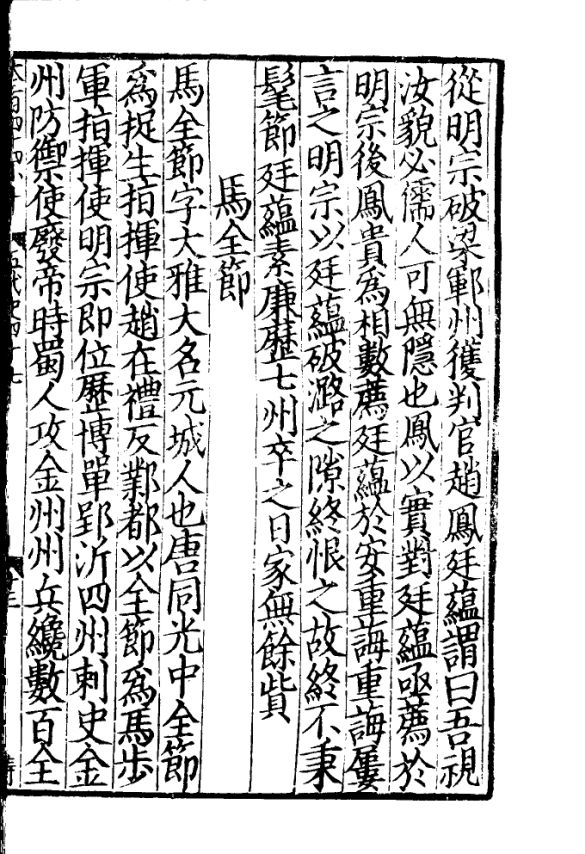 從明宗破梁鄆州獲判官趙鳳廷蘊謂曰吾視
汝貌必儒人可無隱也鳳以實對廷蘊亟薦於
明宗後鳳貴為相數薦廷蘊於安重誨重誨屢
言之明宗以廷蘊破潞之隙終恨之故終不秉
髦節廷蘊素廉歷七州卒之日家無餘貲
馬全節
馬全節字大雅大名元城人也唐同光中全節
為捉生指揮使趙在禮反鄴都以全節為馬步
軍指揮使明宗即位歷博單郢沂四州刺史金
州防禦使廢帝時蜀人攻金州州兵纔數百全